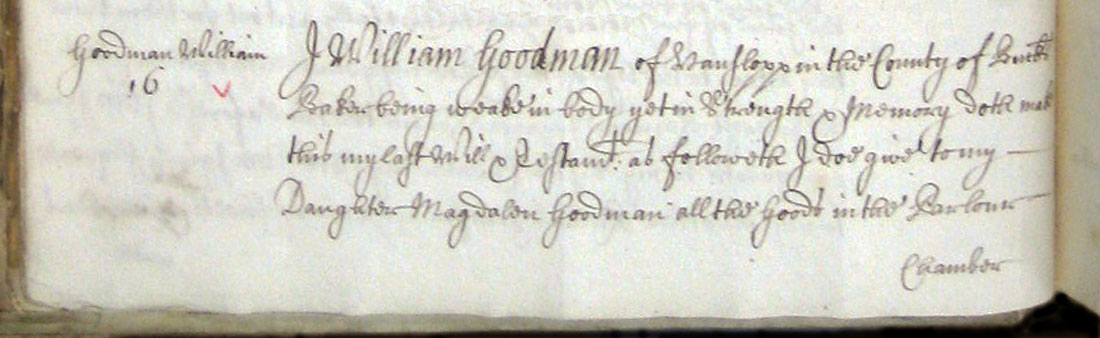 Goodman William
16
I William Goodman of Hanslopp in the County of Buck
Baker being weake in body yet in Strength & Memory doth make
this my last Will & Testamt: as followeth I doe give to my
Daughter Magdalen Goodman all the Goods in the Parlour
Chamber